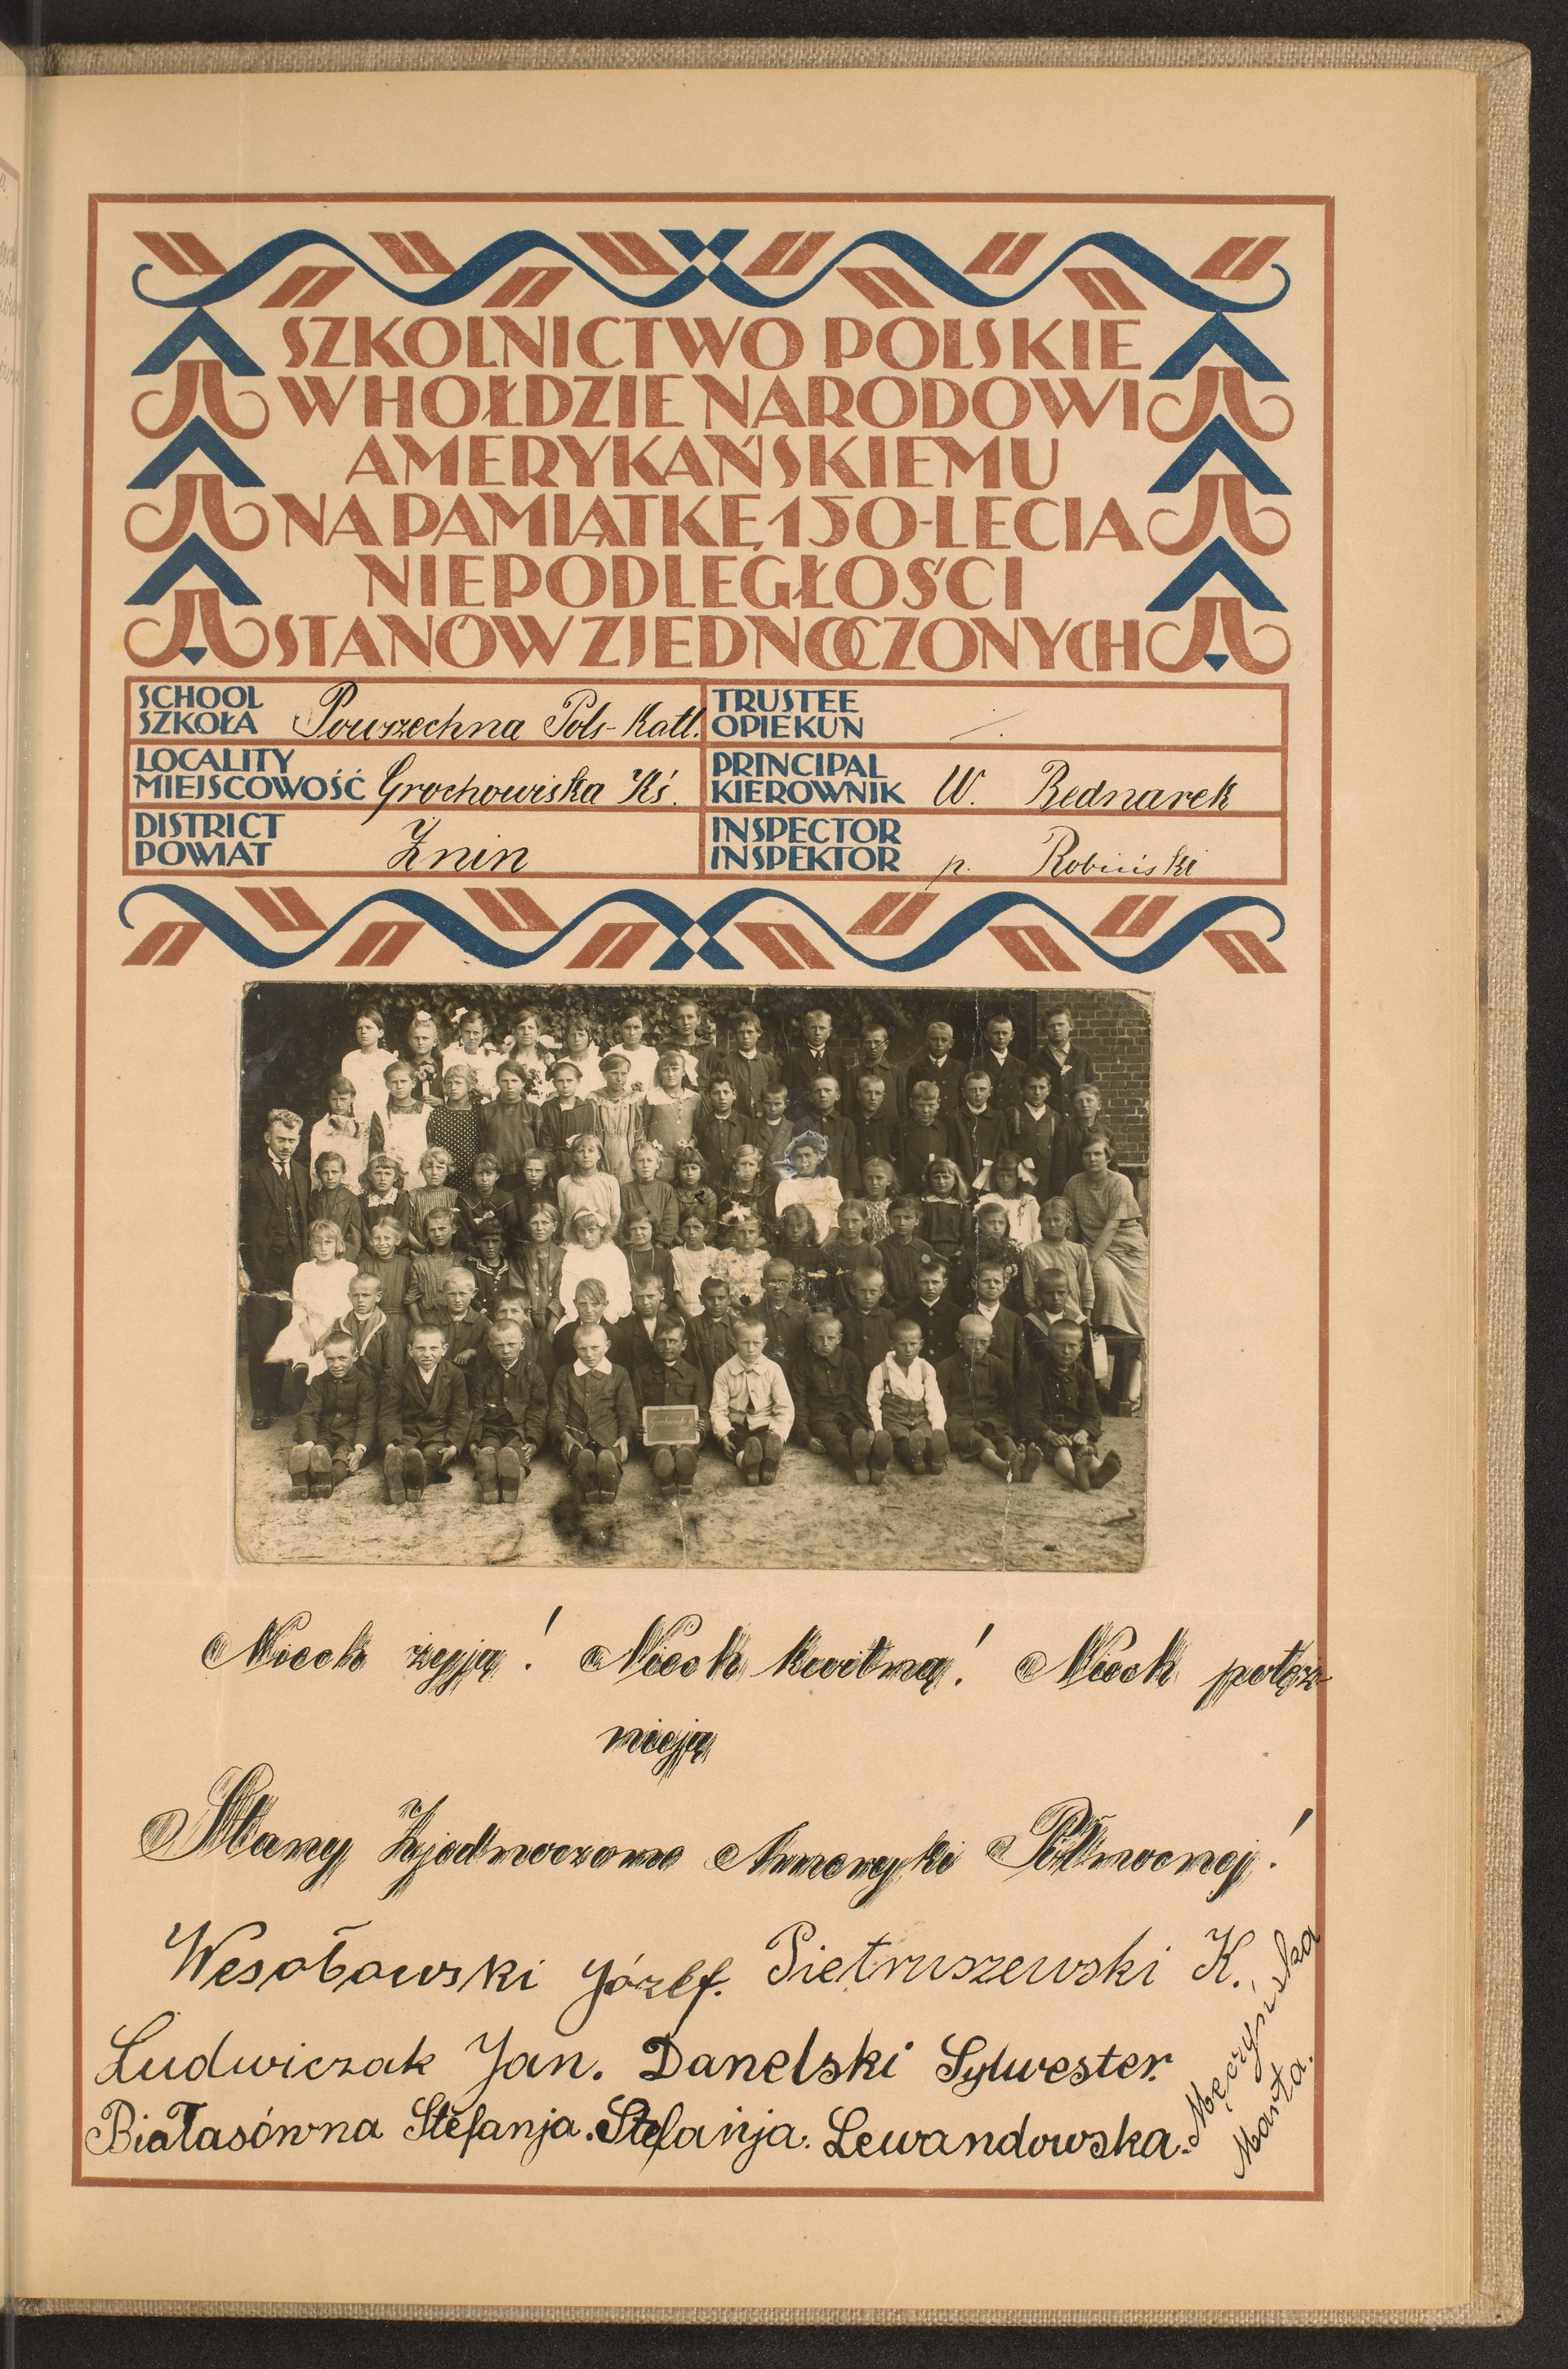 SZKOLNICTWO POLSKIE
W HOŁDZIE NARODOWI
AMERYKAŃSKIEMU
NA PAMIĄTKĘ 150-LECIA
NIEPODLEGŁOŚCI
STANÓW ZJEDNOCZONYCH
SCHOOL
SZKOŁA Powszechna Pols-Katl.
TRUSTEE
OPIEKUN
LOCALITY
MIEJSCOWOŚĆ Grochowiska Kś.
PRINCIPAL
KIEROWNIK W. Bednarek
DISTRICT
POWIAT Żnin
INSPECTOR
INSPEKTOR p. Robiński
Niech żyją! Niech kwitną! Niech potęż-
nieją
Stany Zjednoczone Ameryki Północnej!
Wesołowski Józef. Pietruszewski K.
Ludwiczak Jan. Danelski Sylwester.
Białasówna Stefanja. Stefanja. Lewandowska.
Męczyńska
Marta.